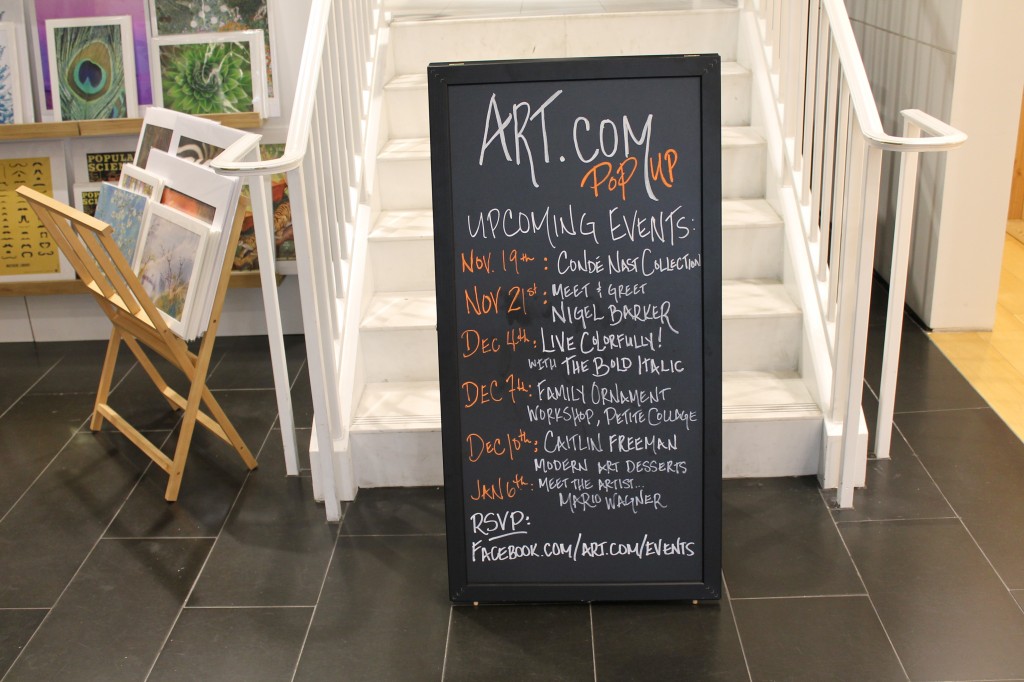 POPULAR
SCIENCE
ART.COM
POP UP
UPCOMING EVENTS:
NOV. 19th: CONDÉ NAST COLLECTION
NOV 21st: MEET & GREET
NIGEL BARKER
DEC 4th: LIVE COLORFULLY!
WITH THE BOLD ITALIC
DEC 7th: FAMILY ORNAMENT
WORKSHOP, PETITE COLLAGE
DEC 10th: CAITLIN FREEMAN
MODERN ART DESSERTS
JAN 6th: MEET THE ARTIST...
MARIO WAGNER
RSVP:
FACEBOOK.COM/ART.COM/EVENTS